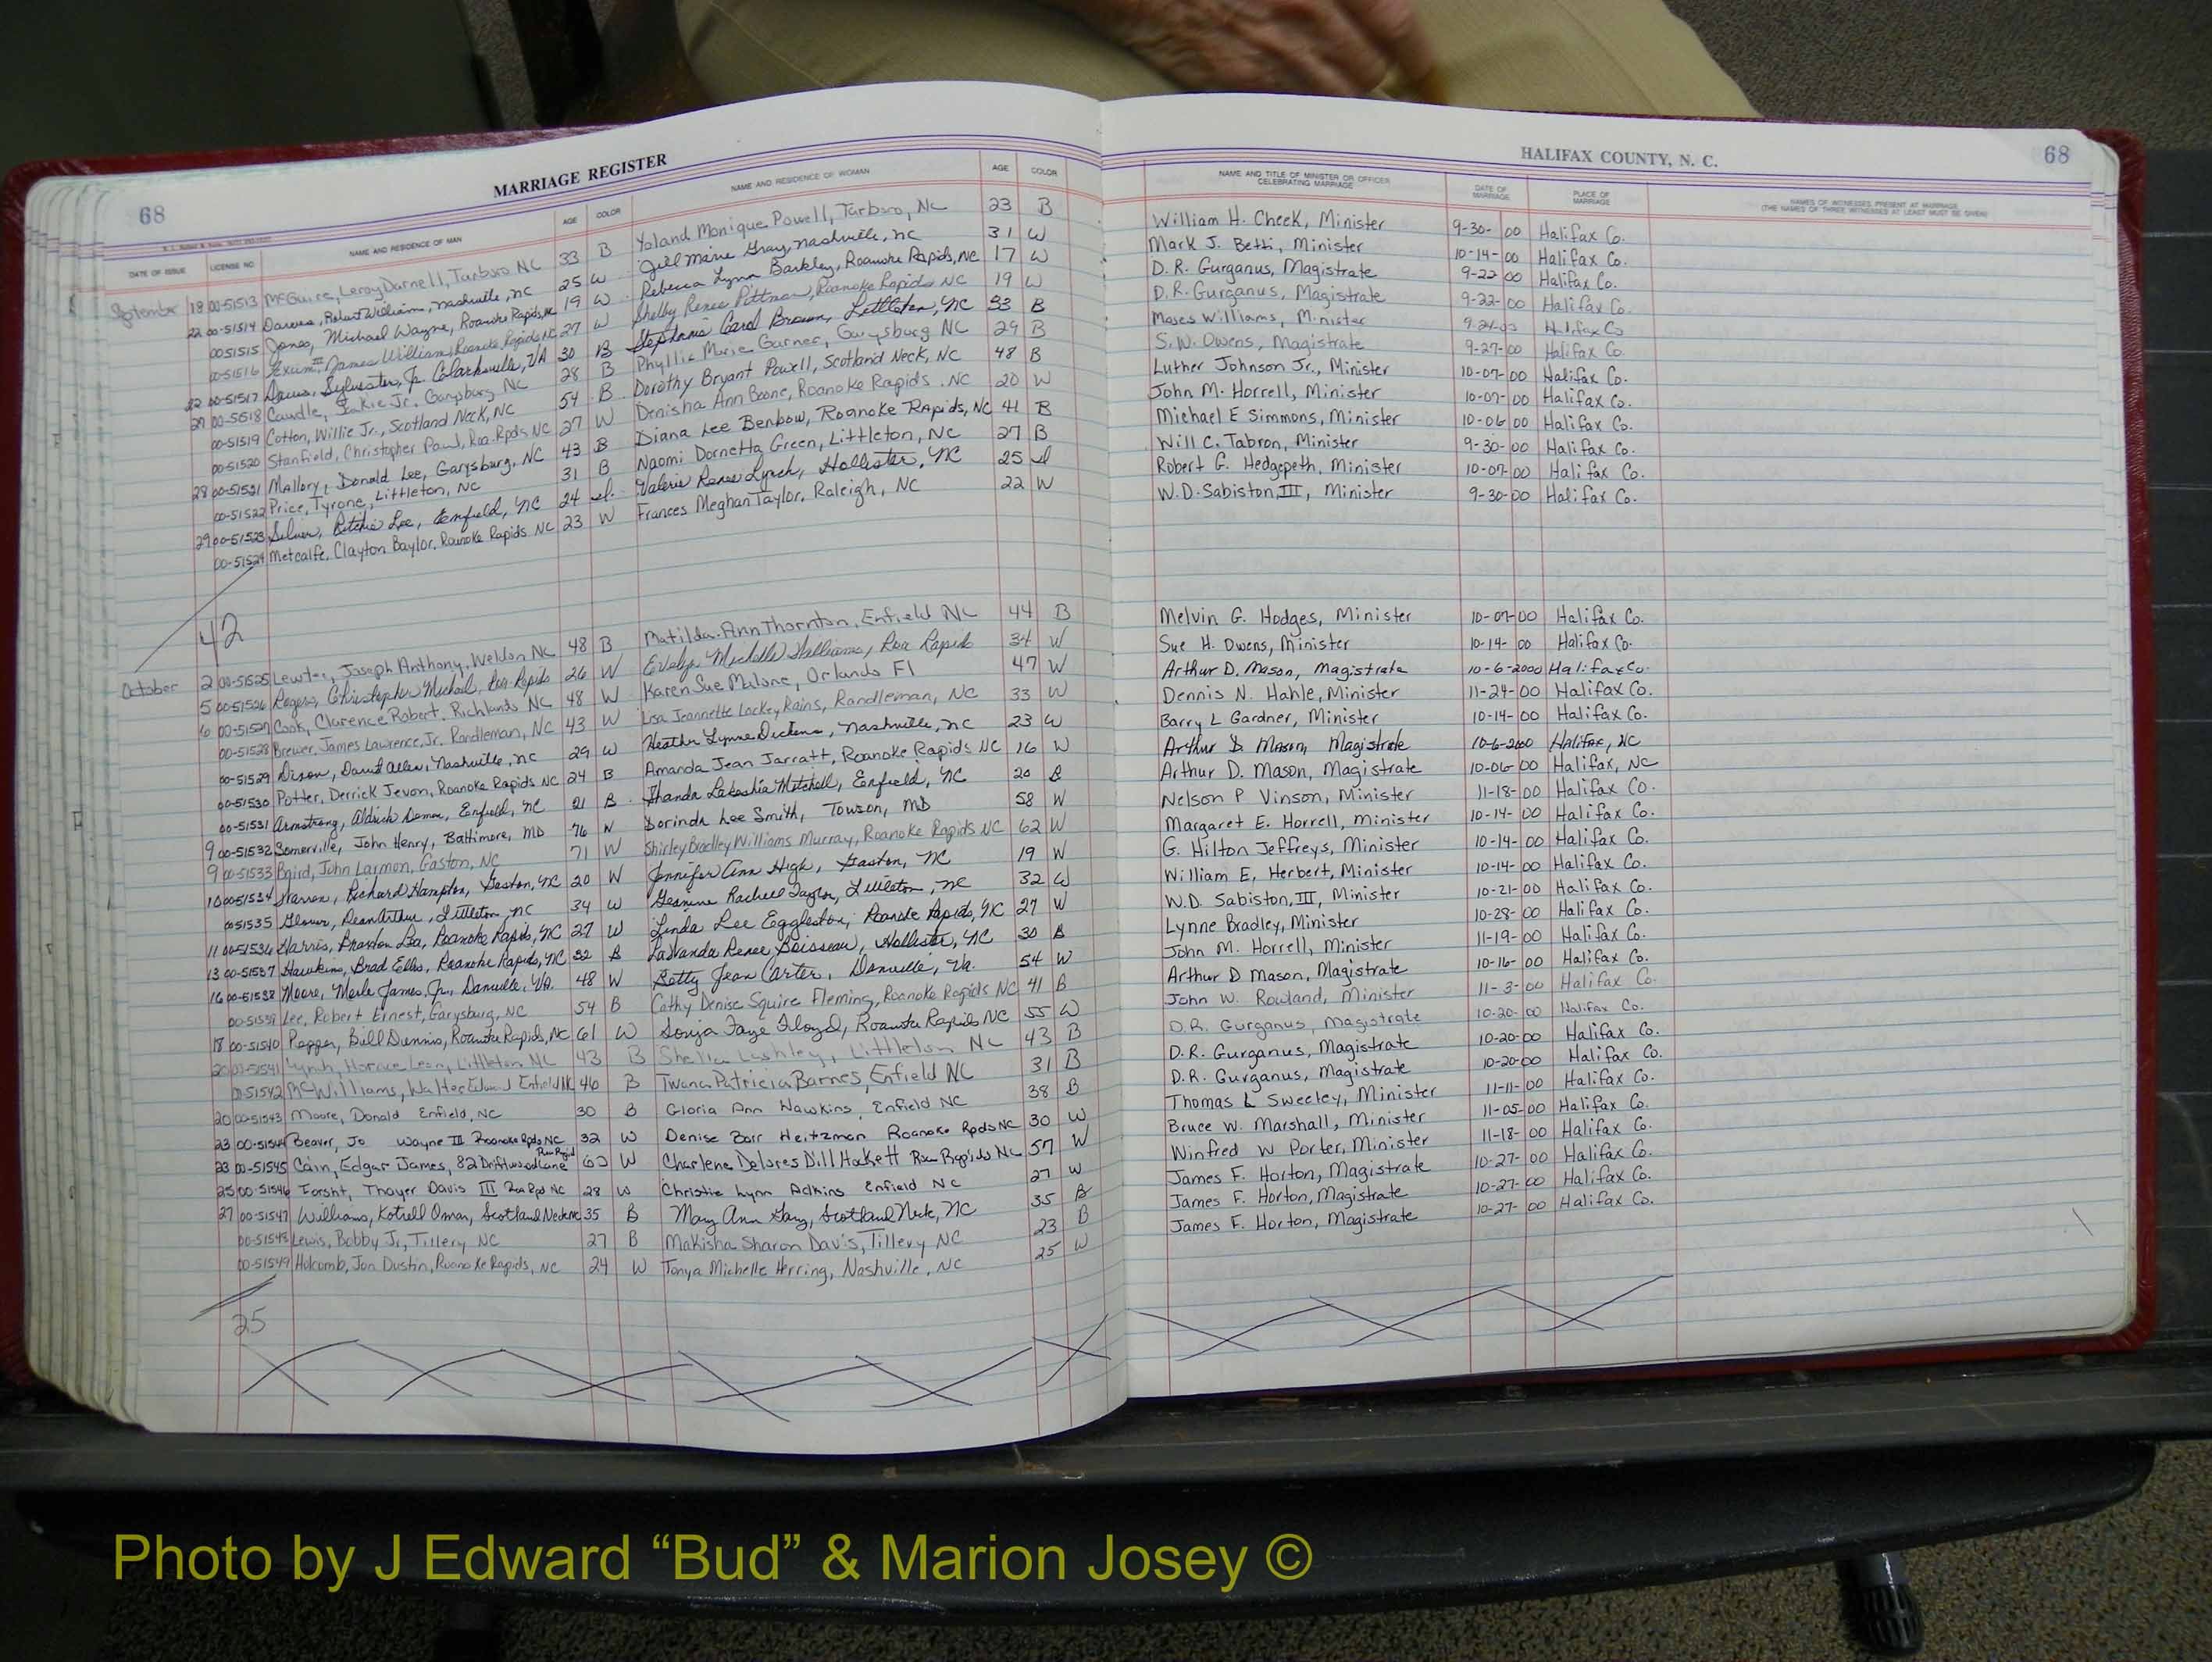 MARRIAGE REGISTER
HALIFAX COUNTY, N. C.
68
68
DATE OF ISSUE LICENSE NO. NAME AND RESIDENCE OF MAN AGE COLOR NAME AND RESIDENCE OF WOMAN AGE COLOR NAME AND TITLE OF MINISTER OR OFFICER CELEBRATING MARRIAGE DATE OF MARRIAGE PLACE OF MARRIAGE NAMES OF WITNESSES PRESENT AT MARRIAGE (THE NAMES OF THREE WITNESSES AT LEAST MUST BE GIVEN)
September 18 00-51513 McGuire, Leroy Darnell, Tarboro NC 33 B Yoland Monique Powell, Tarboro, NC 23 B William H. Cheek, Minister 9-30-00 Halifax Co.
22 00-51514 Robert William, Nashville, NC 25 W Jill Marie Gray, Nashville, NC 31 W Mark J. Betti, Minister 10-14-00 Halifax Co.
00-51515 Jones, Michael Wayne, Roanoke Rapids, NC 19 W Rebecca Lynn Barkley, Roanoke Rapids, NC 17 W D. R. Gurganus, Magistrate 9-22-00 Halifax Co.
00-51516 James William, Roanoke Rapids NC 27 W Shelby Renee Pittman, Roanoke Rapids NC 19 W D. R. Gurganus, Magistrate 9-22-00 Halifax Co.
22 00-51517 Davis, Sylvester, Jr. Clarksville, VA 30 B Stephanie Carol Brown, Littleton, NC 33 B Moses Williams, Minister Halifax Co
27 00-5518 Caudle, Jr. Garysburg NC 28 B Phyllis Marie Garner, Garysburg NC 29 B S. W. Owens, Magistrate 9-27-00 Halifax Co.
00-51519 Cotton, Willie Jr., Scotland Neck, NC 54 B Dorothy Bryant Powell, Scotland Neck, NC 48 B Luther Johnson Jr., Minister 10-07-00 Halifax Co.
00-51520 Stanfield, Christopher Paul, Roa. Rpds NC 27 W Denisha Ann Boone, Roanoke Rapids. NC 20 W John M. Horrell, Minister 10-07-00 Halifax Co.
28 00-51521 Mallory, Donald Lee, Garysburg, NC 43 B Diana Lee Benbow, Roanoke Rapids, NC 41 B Michael E Simmons, Minister 10-06-00 Halifax Co.
00-51522 Price, Tyrone, Littleton, NC 31 B Naomi Dornetta Green, Littleton, NC 27 B Will C. Tabron, Minister 9-30-00 Halifax Co.
29 00-51523 Silver, Ritchie Lee, Enfield, NC 24 I Valerie Renee Lynch, Hollister, NC 25 I Robert G. Hedgepeth, Minister 10-07-00 Halifax Co.
00-51524 Metcalfe, Clayton Baylor, Roanoke Rapids NC 23 W Frances Meghan Taylor, Raleigh, NC 22 W W. D. Sabiston, III, Minister 9-30-00 Halifax Co.
42
October 2 00-51525 Lewter, Joseph Anthony, Weldon NC 48 B Matilda Ann Thornton, Enfield NC 44 B Melvin G. Hodges, Minister 10-07-00 Halifax Co.
5 00-51526 Rogers, Christopher Michael, Roa. Rapids 26 W Evelyn Michelle Williams, Roa Rapids 34 W Sue H. Owens, Minister 10-14-00 Halifax Co.
6 00-51527 Cook, Clarence Robert, Richlands NC 48 W Karen Sue Malone, Orlando Fl 47 W Arthur D. Mason, Magistrate 10-6-2000 Halifax Co.
00-51528 Brewer, James Lawrence, Jr. Randleman, NC 43 W Lisa Jeannette Lackey Rains, Randleman, NC 33 W Dennis N. Hahle, Minister 11-24-00 Halifax Co.
00-51529 Dixon, David Allen, Nashville, NC 29 W Heather Lynne Dickens, Nashville, NC 23 W Barry L Gardner, Minister 10-14-00 Halifax Co.
00-51530 Potter, Derrick Jevon, Roanoke Rapids NC 24 B Amanda Jean Jarratt, Roanoke Rapids NC 16 W Arthur D. Mason, Magistrate 10-6-2000 Halifax, NC
00-51531 Armstrong, Aldrick Enfield, NC 21 B Shanda Lakeshia Mitchell, Enfield, NC 20 B Arthur D. Mason, Magistrate 10-06-00 Halifax, NC
9 00-51532 Somerville, John Henry, Baltimore, MD 76 N Dorinda Lee Smith, Towson, MD 58 W Nelson P Vinson, Minister 11-18-00 Halifax Co.
9 00-51533 Baird, John Larmon, Gaston, NC 71 W Shirley Bradley Williams Murray, Roanoke Rapids NC 62 W Margaret E. Horrell, minister 10-14-00 Halifax Co.
10 00-51534 Warren, Richard Hampton, Gaston, NC 20 W Jennifer Ann High, Gaston, NC 19 W G. Hilton Jeffreys, Minister 10-14-00 Halifax Co.
00-51535 Glover, Dean Arthur, Littleton NC 34 W Jeannine Rachell Taylor, Littleton, NC 32 W William E. Herbert, Minister 10-14-00 Halifax Co.
11 00-51536 Harris, Braxton Roanoke Rapids, NC 27 W Linda Lee Eggleston, Roanoke Rapids, NC 27 W W.D. Sabiston, III, Minister 10-21-00 Halifax Co.
13 00-51537 Hawkins, Brad Ellis, Roanoke Rapids, NC 32 B LaWanda Renee Boisseau, Hollister, NC 30 B Lynne Bradley, Minister 10-28-00 Halifax Co.
16 00-51538 Moore, Merle James, Jr., Danville, VA. 48 W Betty Jean Carter, Danville, Va. 54 W John M. Horrell, Minister 11-19-00 Halifax Co.
00-51539 Lee, Robert Ernest, Garysburg, NC 54 B Cathy Denise Squire Fleming, Roanoke Rapids NC 41 B Arthur D Mason, Magistrate 10-16-00 Halifax Co.
18 00-51540 Pepper, Bill Dennis, Roanoke Rapids, NC 61 W Sonya Faye Floyd, Roanoke Rapids NC 55 W John W. Rowland, Minister 11-3-00 Halifax Co.
20 00-51541 Lynch, Horace Leon, Littleton NC 43 B Shelia Lashley, Littleton NC 43 B D.R. Gurganus, Magistrate 10-20-00 Halifax Co.
00-51542 McWilliams, Walter Edward Enfield NC 46 B Twana Patricia Barnes, Enfield NC 31 B D.R. Gurganus, Magistrate 10-20-00 Halifax Co.
20 00-51543 Moore, Donald Enfield, NC 30 B Gloria Ann Hawkins, Enfield NC 38 B D.R. Gurganus, Magistrate 10-20-00 Halifax Co.
23 00-51544 Beaver, Jo Wayne III Roanoke Rpds NC 32 W Denise Barr Heitzman Roanoke Rpds NC 30 W Thomas L Sweeley, Minister 11-11-00 Halifax Co.
23 00-51545 Cain, Edgar James, 82 Driftwood Lane W Charlene Delores Dill Hackett Roa Rapids NC 57 W Bruce W. Marshall, Minister 11-05-00 Halifax Co.
25 00-51546 Forsht, Thayer Davis III Roa Rpd NC 28 W Christie Lynn Adkins Enfield NC 27 W Winfred W Porter, Minister 11-18-00 Halifax Co.
27 00-51547 Williams, Kotrell Omar, Scotland Neck NC 35 B Mary Ann Gary, Scotland Neck, NC 35 B James F. Horton, Magistrate 10-27-00 Halifax Co.
00-51548 Lewis, Bobby Jr., Tillery NC 27 B Makisha Sharon Davis, Tillery NC 23 B James F. Horton, Magistrate 10-27-00 Halifax Co.
00-51549 Holcomb, Jon Dustin, Roanoke Rapids, NC 24 W Tonya Michelle Herring, Nashville, NC 25 W James F. Horton, Magistrate 10-27-00 Halifax Co.
25
Photo by J Edward “Bud” & Marion Josey ©